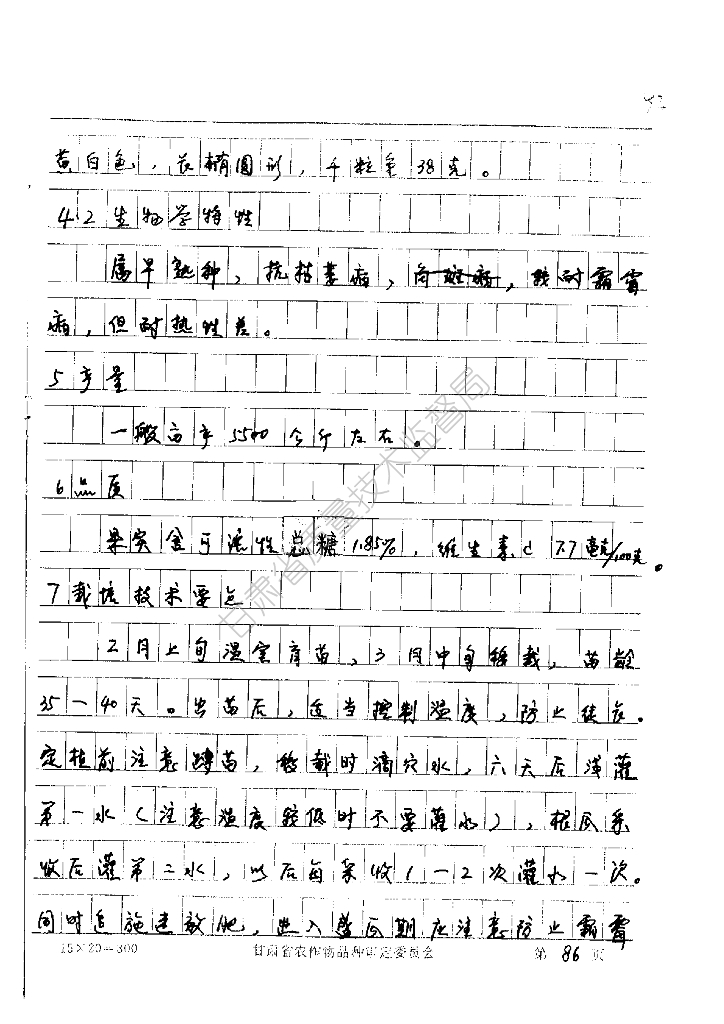 黄白色，长椭圆形，千粒重38克。
4.2生物学特性
属早熟种，抗枯萎病，角斑病，较耐霜霉
病，但耐热性差。
5产量
一般亩产5500公斤左右。
6品质
果实含可溶性总糖1.85%，维生素C 7.7毫克/100克。
7栽培技术要点
2月上旬温室育苗，3月中旬移栽，苗龄
35—40天。出苗后，适当控制温度，防止徒长。
定植前注意蹲苗，移栽时滴穴水，六天后浅灌
第一水（注意温度较低时不要灌水），根瓜采
收后灌第二水，以后每采收1—2次灌水一次。
同时追施速效肥，进入盛瓜期应注意防止霜霉
15×20=300
甘肃省农作物品种审定委员会
第86页
甘肃省质量技术监督局